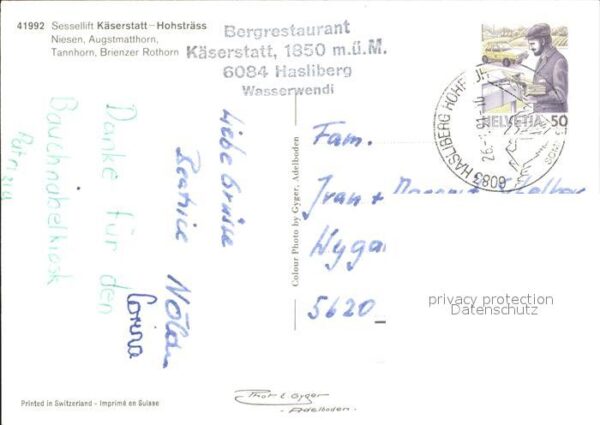 41992 Sessellift Käserstatt-Hohsträss
Niesen, Augstmatthorn,
Tannhorn, Brienzer Rothorn
Bergrestaurant
Käserstatt, 1850 m.ü.M.
6084 Hasliberg
Wasserwendi
HELVETIA 50
6083 HASLIBERG HOHFLUH
Danke für den
Bauchnabelkiosk
Liebe Grüsse
Beatrice
Corina
Colour Photo by Gyger, Adelboden
Fam.
Ivan +
Wyga
5620
privacy protection
Datenschutz
Printed in Switzerland - Imprimé en Suisse
Gyger
Adelboden.